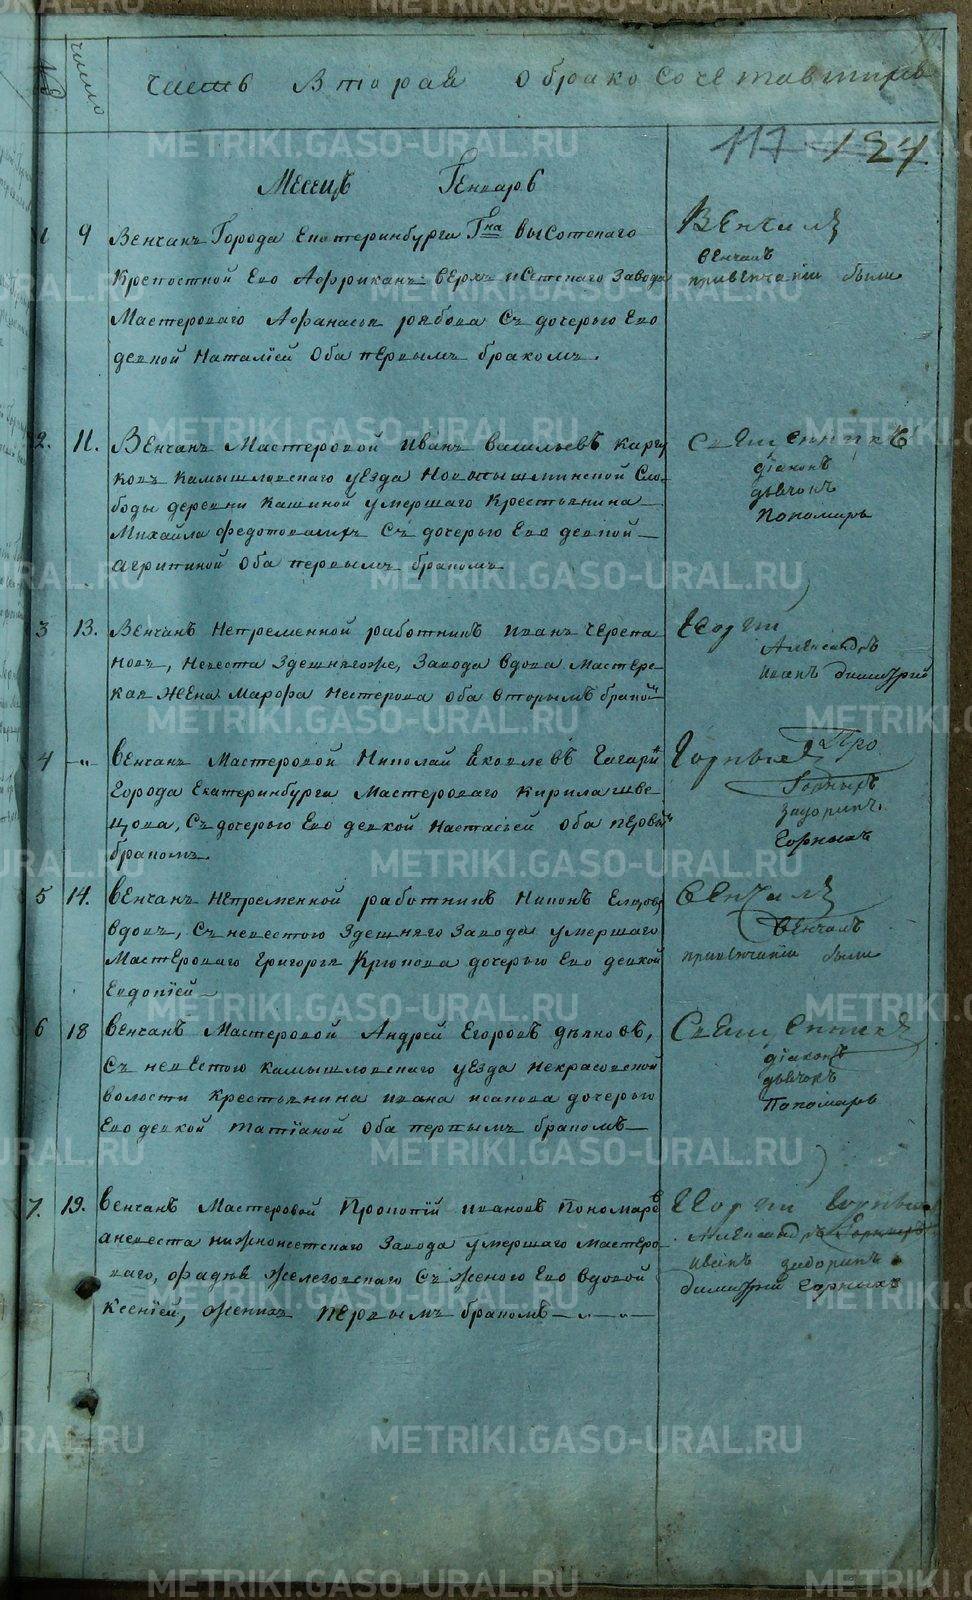 № число Часть Вторая о бракосочетавшихся
117 124
Месецъ Генварь
1 9 Венчанъ Города Екатеринбурга Гна высотскаго
Крепостной Ево Африканъ верхъ исетскаго Завода
Мастероваго Афанасья рябова Съ дочерью Ево
девкой Наталіей Оба первымъ бракомъ.
Венчалъ
венчалъ
привенчаніи были
2. 11. Венчанъ Мастеровой Иванъ васильевъ
Камышловскаго уезда Новопышминской Сло-
боды деревни Кашиной умершаго Крестьянина
Михайла Съ дочерью Ево девкой
агрипиной Оба первымъ бракомъ
Священникъ
діаконъ
дьячокъ
Пономарь
3 13. Венчанъ Непременной работникъ иванъ Черепа
новъ, Невеста Здешнягоже, Завода вдова Мастерс-
кая Жена Марфа Нестерова Оба вторымъ
Георгий
Александръ
иванъ димитрий
4 —„— Венчанъ Мастеровой Николай Яковлевъ Гагари
Города Екатеринбурга Мастероваго Кирила шве-
цова, Съ дочерью Ево девкой Настасьей Оба первы
бракомъ
Горныхъ
задоринъ
Горныхъ
5 14. Венчанъ Непременной работникъ Никонъ
вдовъ, Съ невестою Здешняго Завода умершаго
Мастероваго Григорья Крюкова дочерью Ево девкой
Евдокіей
венчалъ
венчалъ
привенчаніи были
6 18 Венчанъ Мастеровой Андрей Егоровъ дьяковъ,
Съ невестою камышловскаго уезда некрасовской
волости крестьянина ивана исакова дочерью
Ево девкой татіаной Оба первымъ бракомъ
Священникъ
діаконъ
дьячокъ
Пономарь
7. 19. Венчанъ Мастеровой Прокопій ивановъ Пономаре
аневеста нижнеисетскаго Завода умершаго Мастеро-
ваго, фадѣя Железовскаго Съ Женою Ево вдовой
Ксеніей, Женихъ первымъ бракомъ
Георгий
Александръ Горныхъ
иванъ задоринъ
димитрий Горныхъ
METRIKI.GASO-URAL.RU